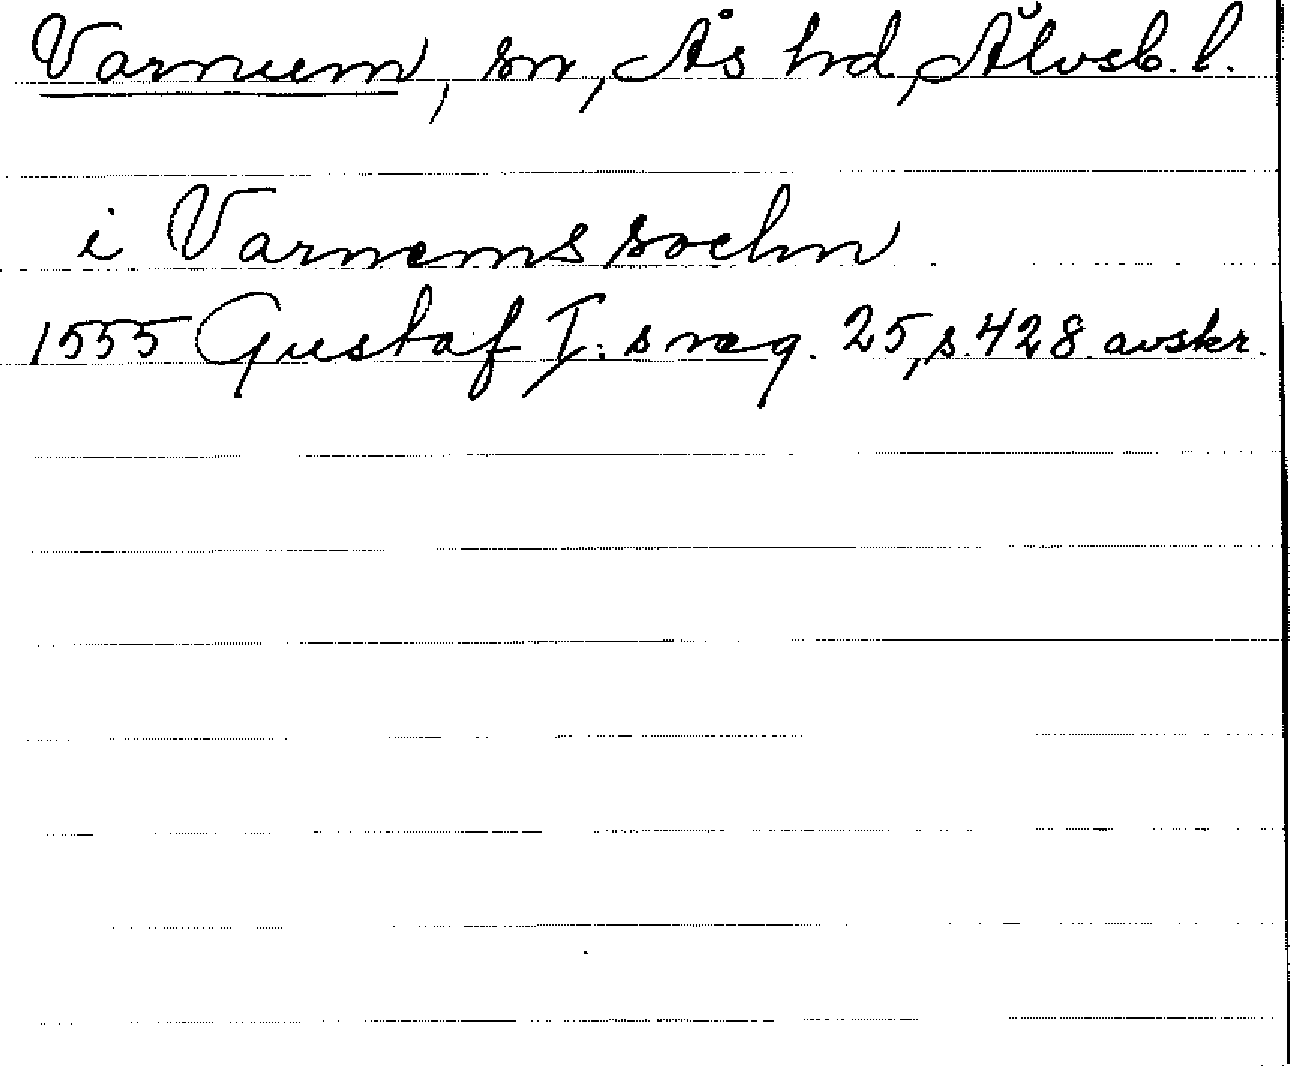 Varnum, sn, Ås hd, Älvsb. l.
i Varnems sochn
1555 Gustaf I:s reg. 25, s. 428. avskr.